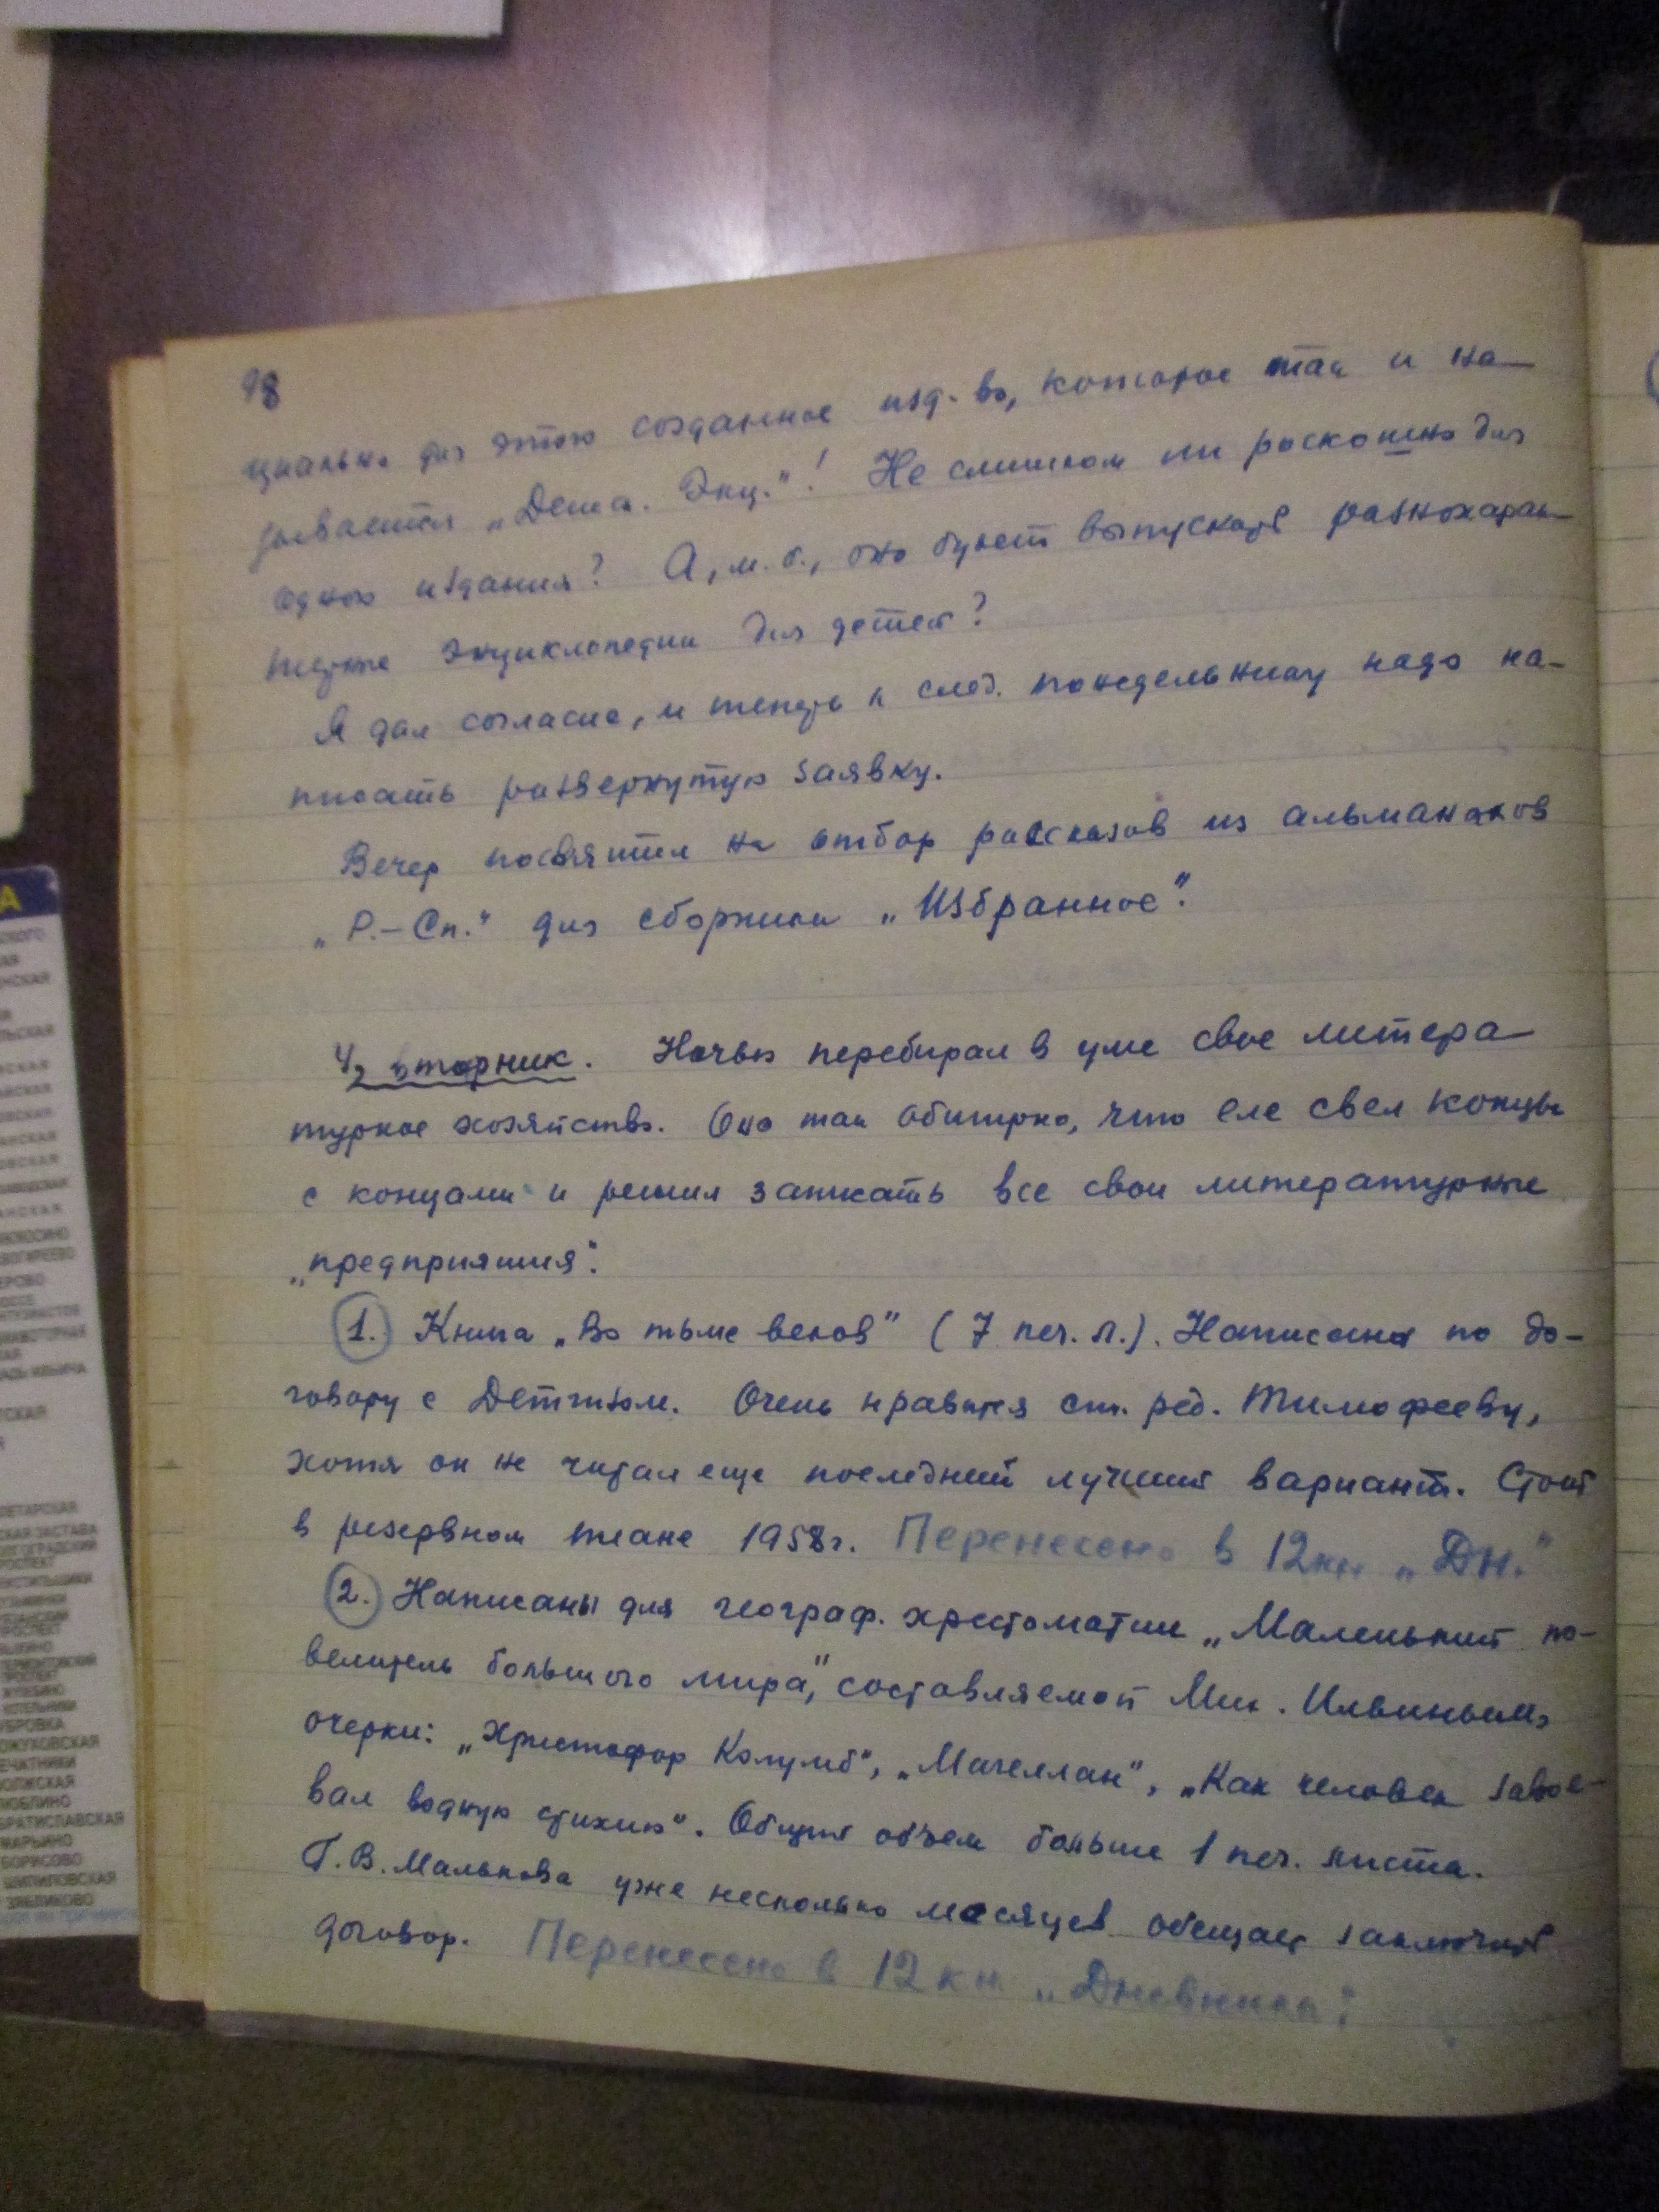 98
циально для этого созданное изд-во, которое так и на-
зывается „Детск. Энц."! Не слишком ли роскошно для
одного издания? А, м.б., оно будет выпускать разнохарак-
терные энциклопедии для детей?
Я дал согласие, и теперь к след. понедельнику надо на-
писать развернутую заявку.
Вечер посвятил на отбор рассказов из альманахов
„Р.-Сп." для сборника „Избранное".
4, вторник. Ночью перебирал в уме свое литера-
турное хозяйство. Оно так обширно, что еле свел концы
с концами и решил записать все свои литературные
„предприятия".
1. Книга „Во тьме веков" (7 печ. л.). Написана по до-
говору с Детгизом. Очень нравится ст. ред. Тимофееву,
хотя он не читал еще последний лучший вариант. Стоит
в резервном плане 1958 г. Перенесено в 12 кн. „Дн."
2. Написаны для географ. хрестоматии „Маленький по-
велитель большого мира", составляемой Мих. Ильиным,
очерки: „Христофор Колумб", „Магеллан", „Как человек завое-
вал водную стихию". Общий объем больше 1 печ. листа.
Г.В. Малькова уже несколько месяцев обещает заключить
договор. Перенесено в 12 кн. „Дневника".
ЕРОВО
УБРОВКА
ОЖУХОВСКАЯ
ЕЧАТНИКИ
ОЛЖСКАЯ
ЛЮБЛИНО
БРАТИСЛАВСКАЯ
МАРЬИНО
БОРИСОВО
ШИПИЛОВСКАЯ
ЗЯБЛИКОВО